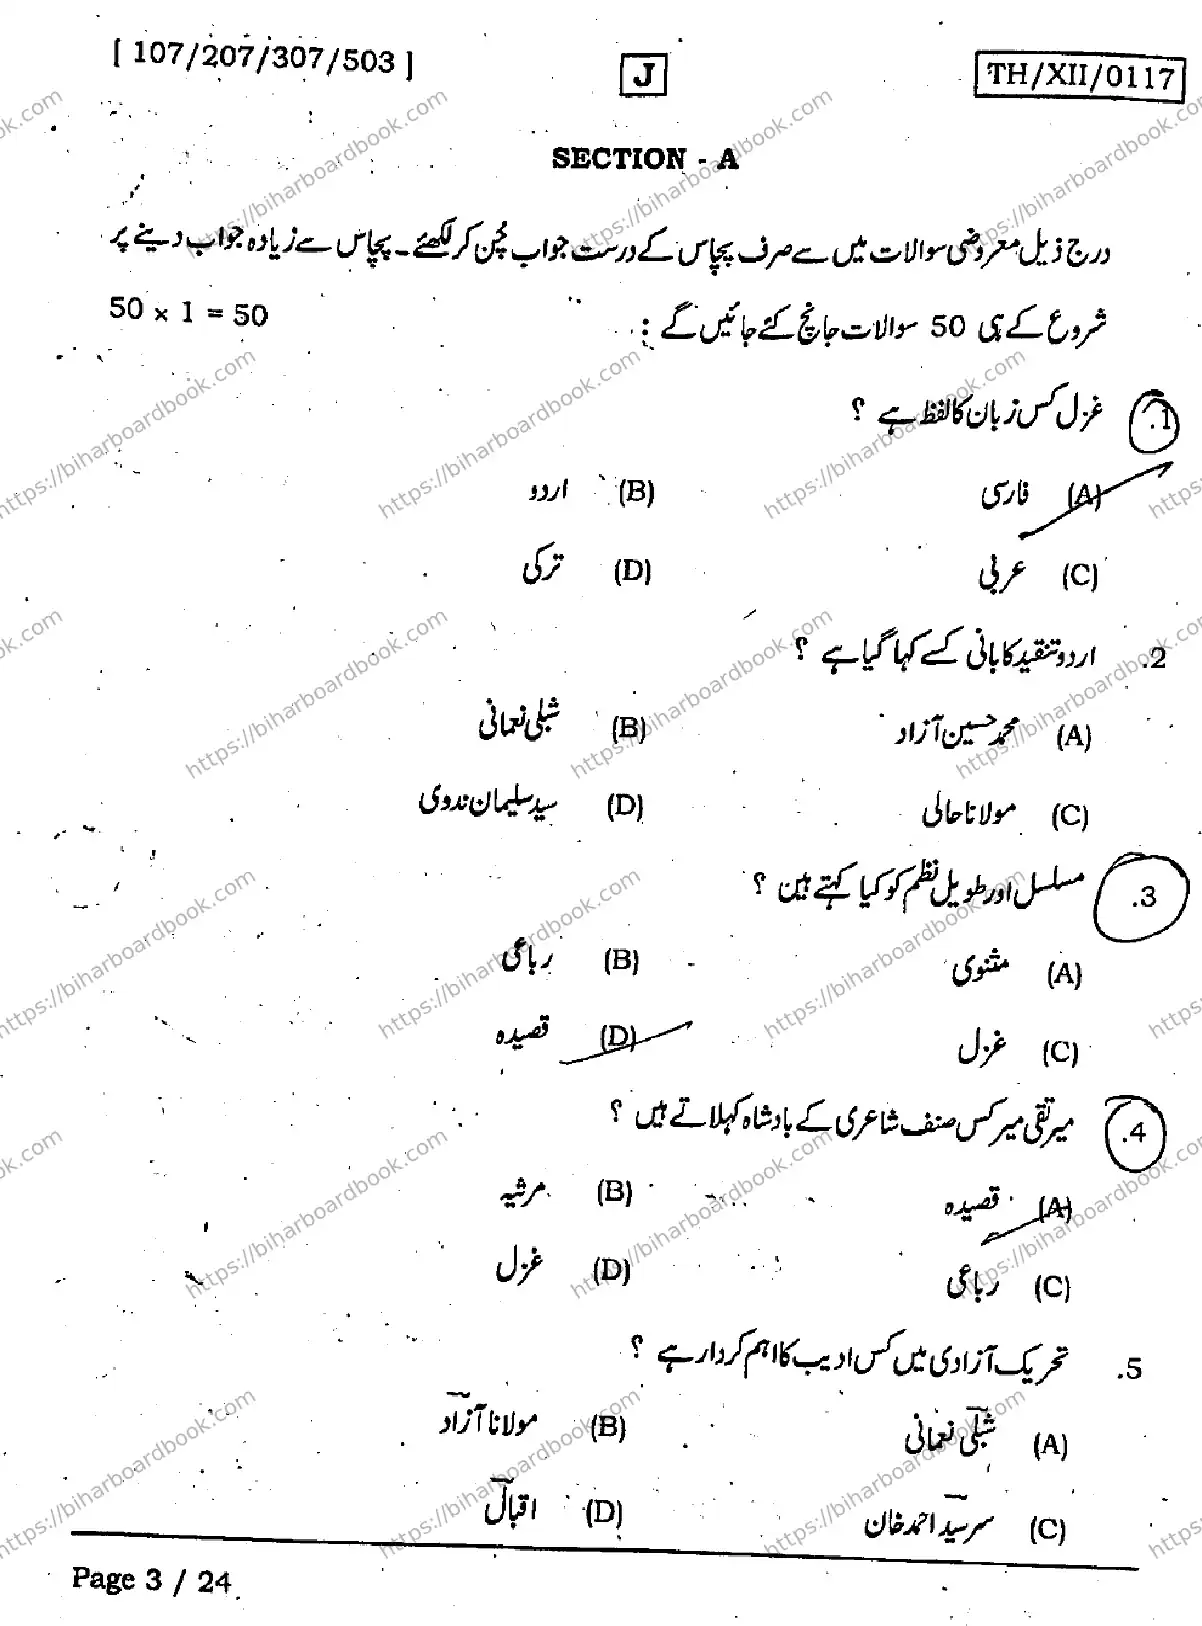 [ 107/207/307/503 ] J TH/XII/0117
SECTION - A
درج ذیل معروضی سوالات میں سے صرف پچاس کے درست جواب چُن کر لکھئے۔ پچاس سے زیادہ جواب دینے پر
شروع کے ہی 50 سوالات جانچ کئے جائیں گے : 50 x 1 = 50
1. غزل کس زبان کا لفظ ہے ؟
(A) فارسی (B) اردو
(C) عربی (D) ترکی
2. اردو تنقید کا بانی کسے کہا گیا ہے ؟
(A) محمد حسین آزاد (B) شبلی نعمانی
(C) مولانا حالی (D) سید سلیمان ندوی
3. مسلسل اور طویل نظم کو کیا کہتے ہین ؟
(A) مثنوی (B) رباعی
(C) غزل (D) قصیدہ
4. میر تقی میر کس صنف شاعری کے بادشاہ کہلاتے ہیں ؟
(A) قصیدہ (B) مرثیہ
(C) رباعی (D) غزل
5. تحریک آزادی میں کس ادیب کا اہم کردار ہے ؟
(A) شبلی نعمانی (B) مولانا آزاد
(C) سر سید احمد خان (D) اقبال
Page 3 / 24
https://biharboardbook.com